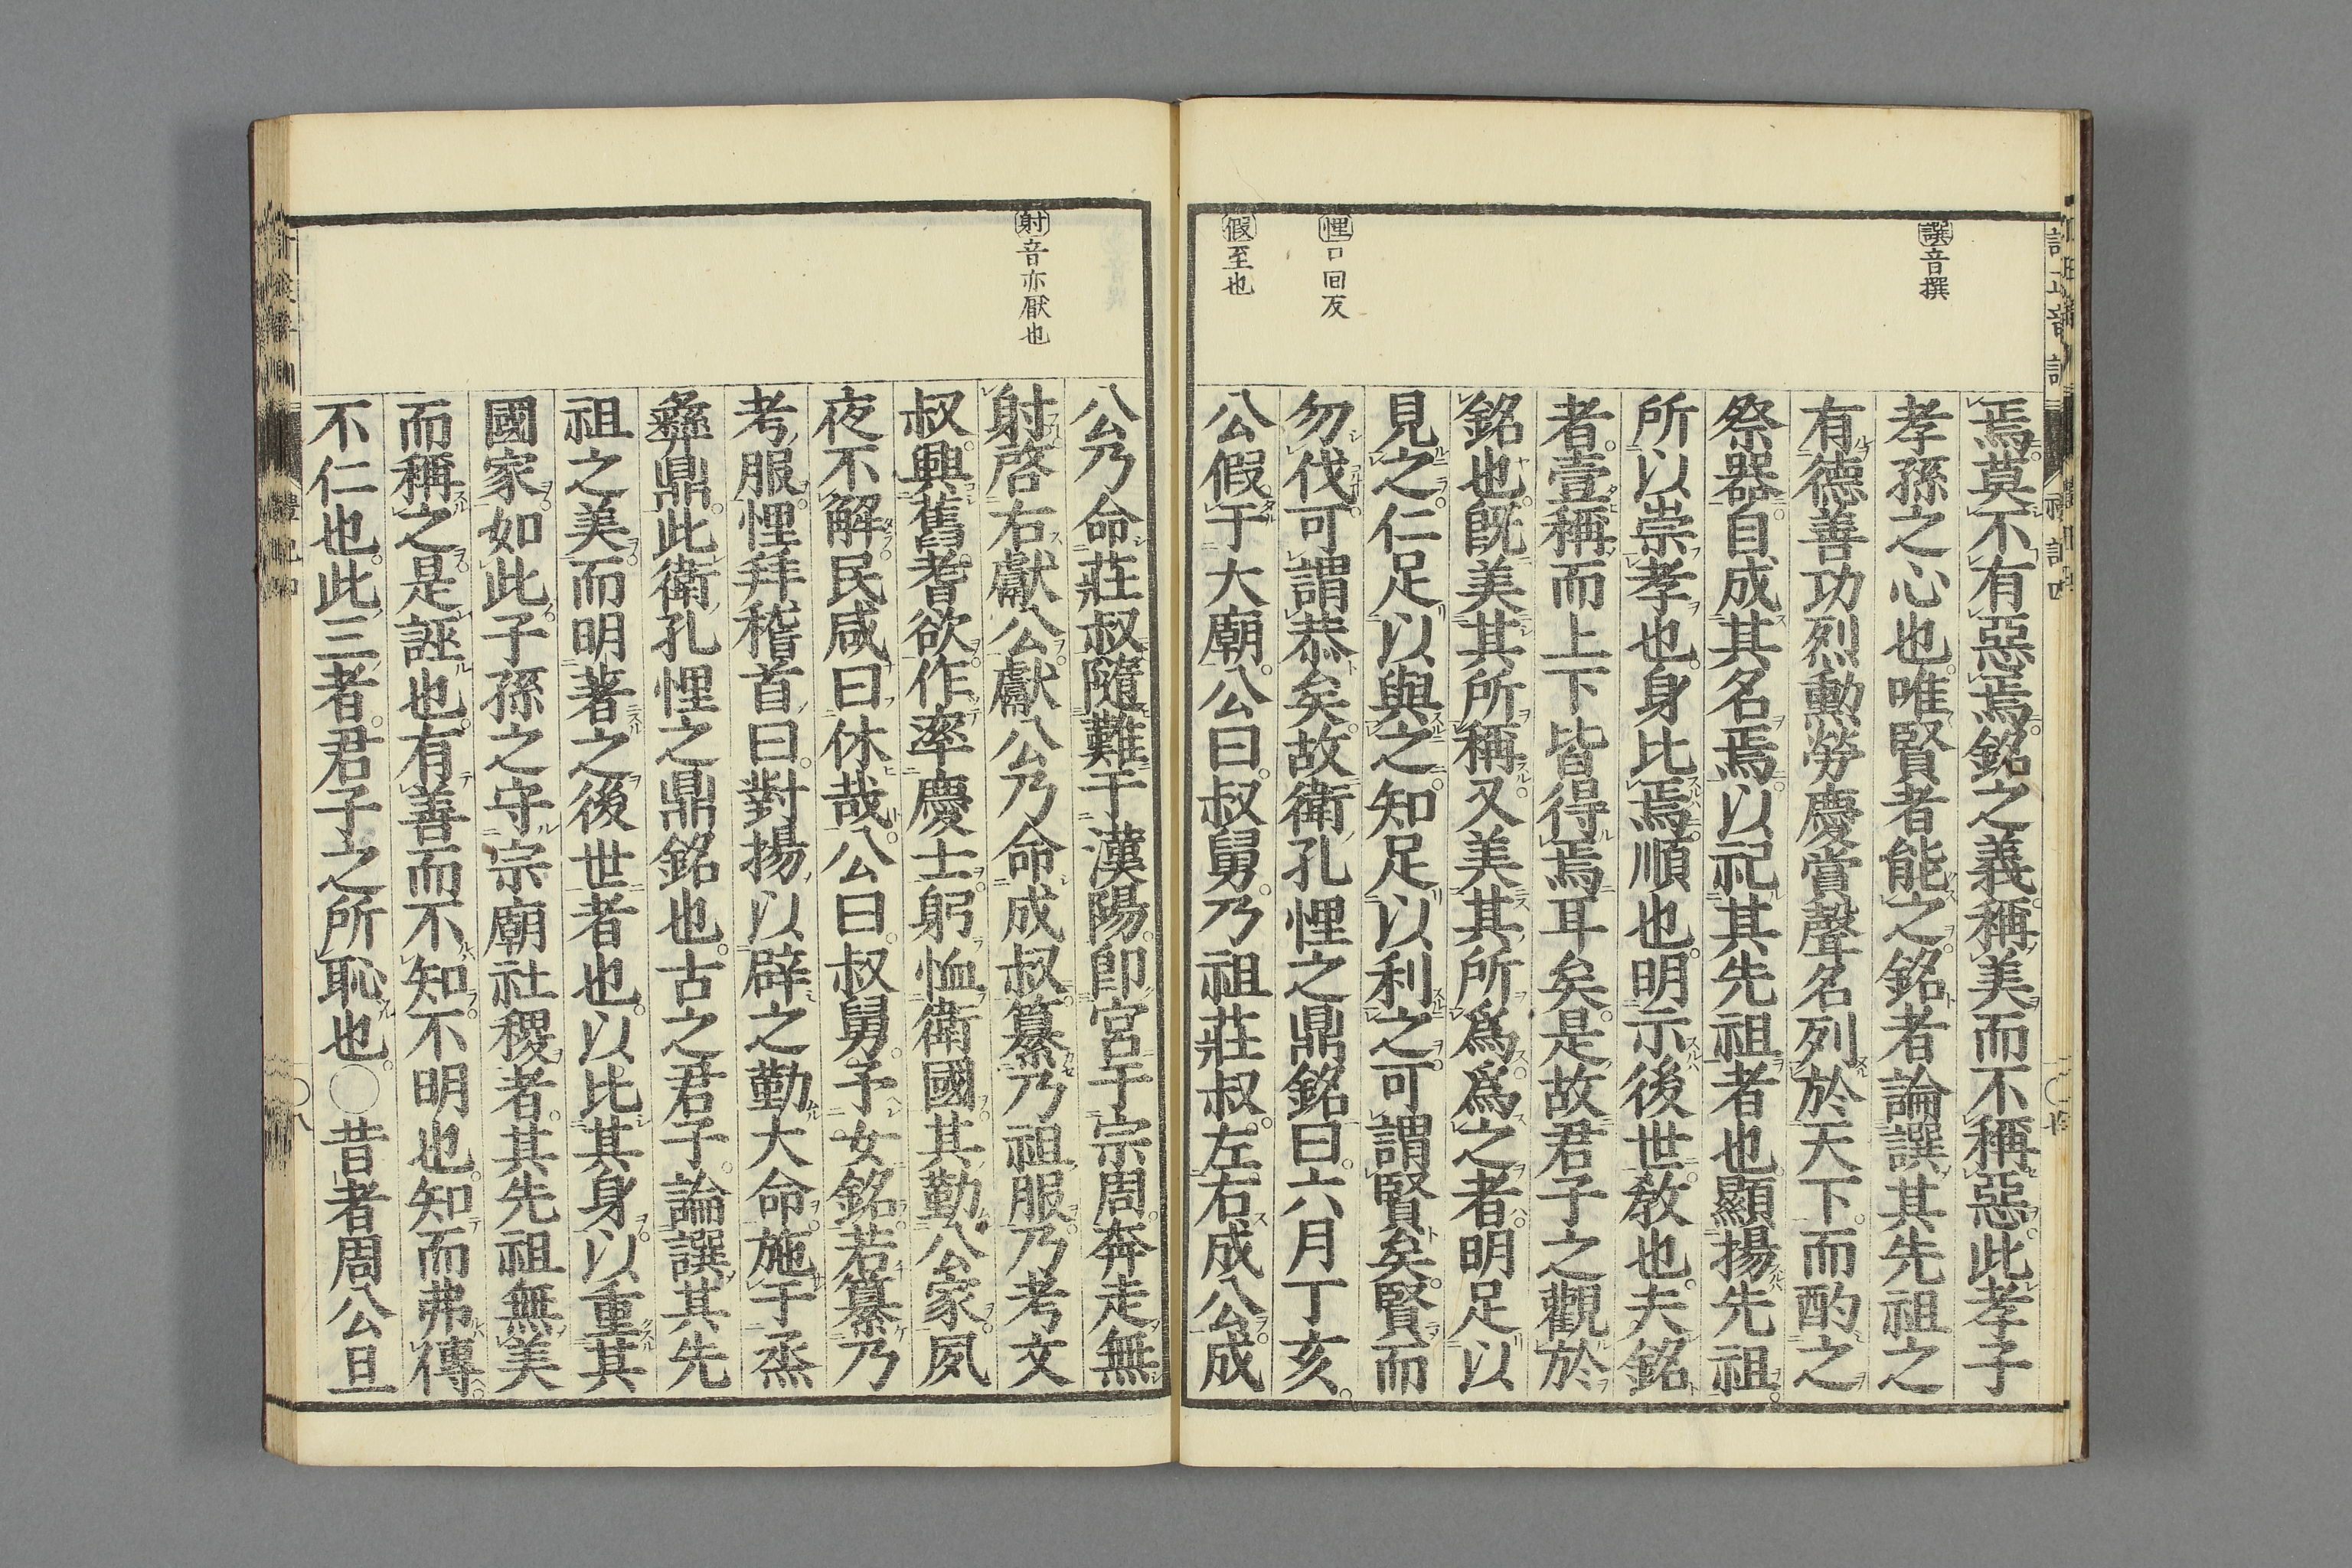 譔音撰
悝口回反
假至也
焉莫不有惡焉銘之義稱美而不稱惡此孝子
孝孫之心也唯賢者能之銘者論譔其先祖之
有德善功烈勳勞慶賞聲名列於天下而酌之
祭器自成其名焉以祀其先祖者也顯揚先祖
所以崇孝也身比焉順也明示後世敎也夫銘
者壹稱而上下皆得焉耳矣是故君子之觀於
銘也既美其所稱又美其所爲爲之者明足以
見之仁足以與之知足以利之可謂賢矣賢而
勿伐可謂恭矣故衛孔悝之鼎銘曰六月丁亥
公假于大廟公曰叔舅乃祖莊叔左右成公成
射音亦厭也
公乃命莊叔隨難于漢陽卽宮于宗周奔走無
射啓右獻公獻公乃命成叔纂乃祖服乃考文
叔興舊耆欲作率慶士躬恤衛國其勤公家夙
夜不解民咸曰休哉公曰叔舅予女銘若纂乃
考服悝拜稽首曰對揚以辟之勤大命施于烝
彝鼎此衛孔悝之鼎銘也古之君子論譔其先
祖之美而明著之後世者也以比其身以重其
國家如此子孫之守宗廟社稷者其先祖無美
而稱之是誣也有善而不知不明也知而弗傳
不仁也此三者君子之所恥也○昔者周公旦